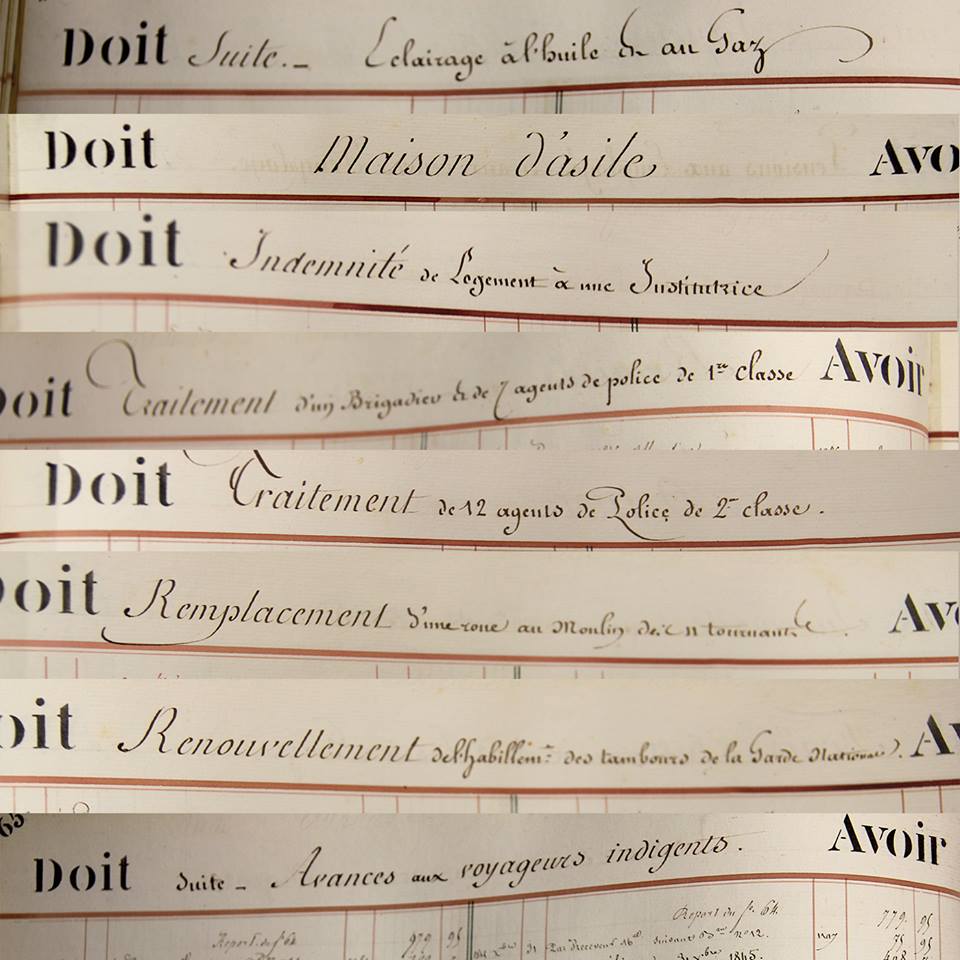 Doit Suite._ Eclairage à l'huile & au Gaz
Doit Maison d'asile Avo
Doit Indemnité de Logement à une Institutrice
Doit Traitement d'un Brigadier & de 7 agents de police de 1re classe Avoir
Doit Traitement de 12 agents de Police de 2e classe.
Doit Remplacement d'une roue au Moulin tournant Avo
oit Renouvellement de l'habillemt des tambours de la Garde Nationale). Av
65
Doit Suite _ Avances aux voyageurs indigents. Avoir
Report du fo 64.
Report du fo 64 979 95 779. 95
75 95
1845